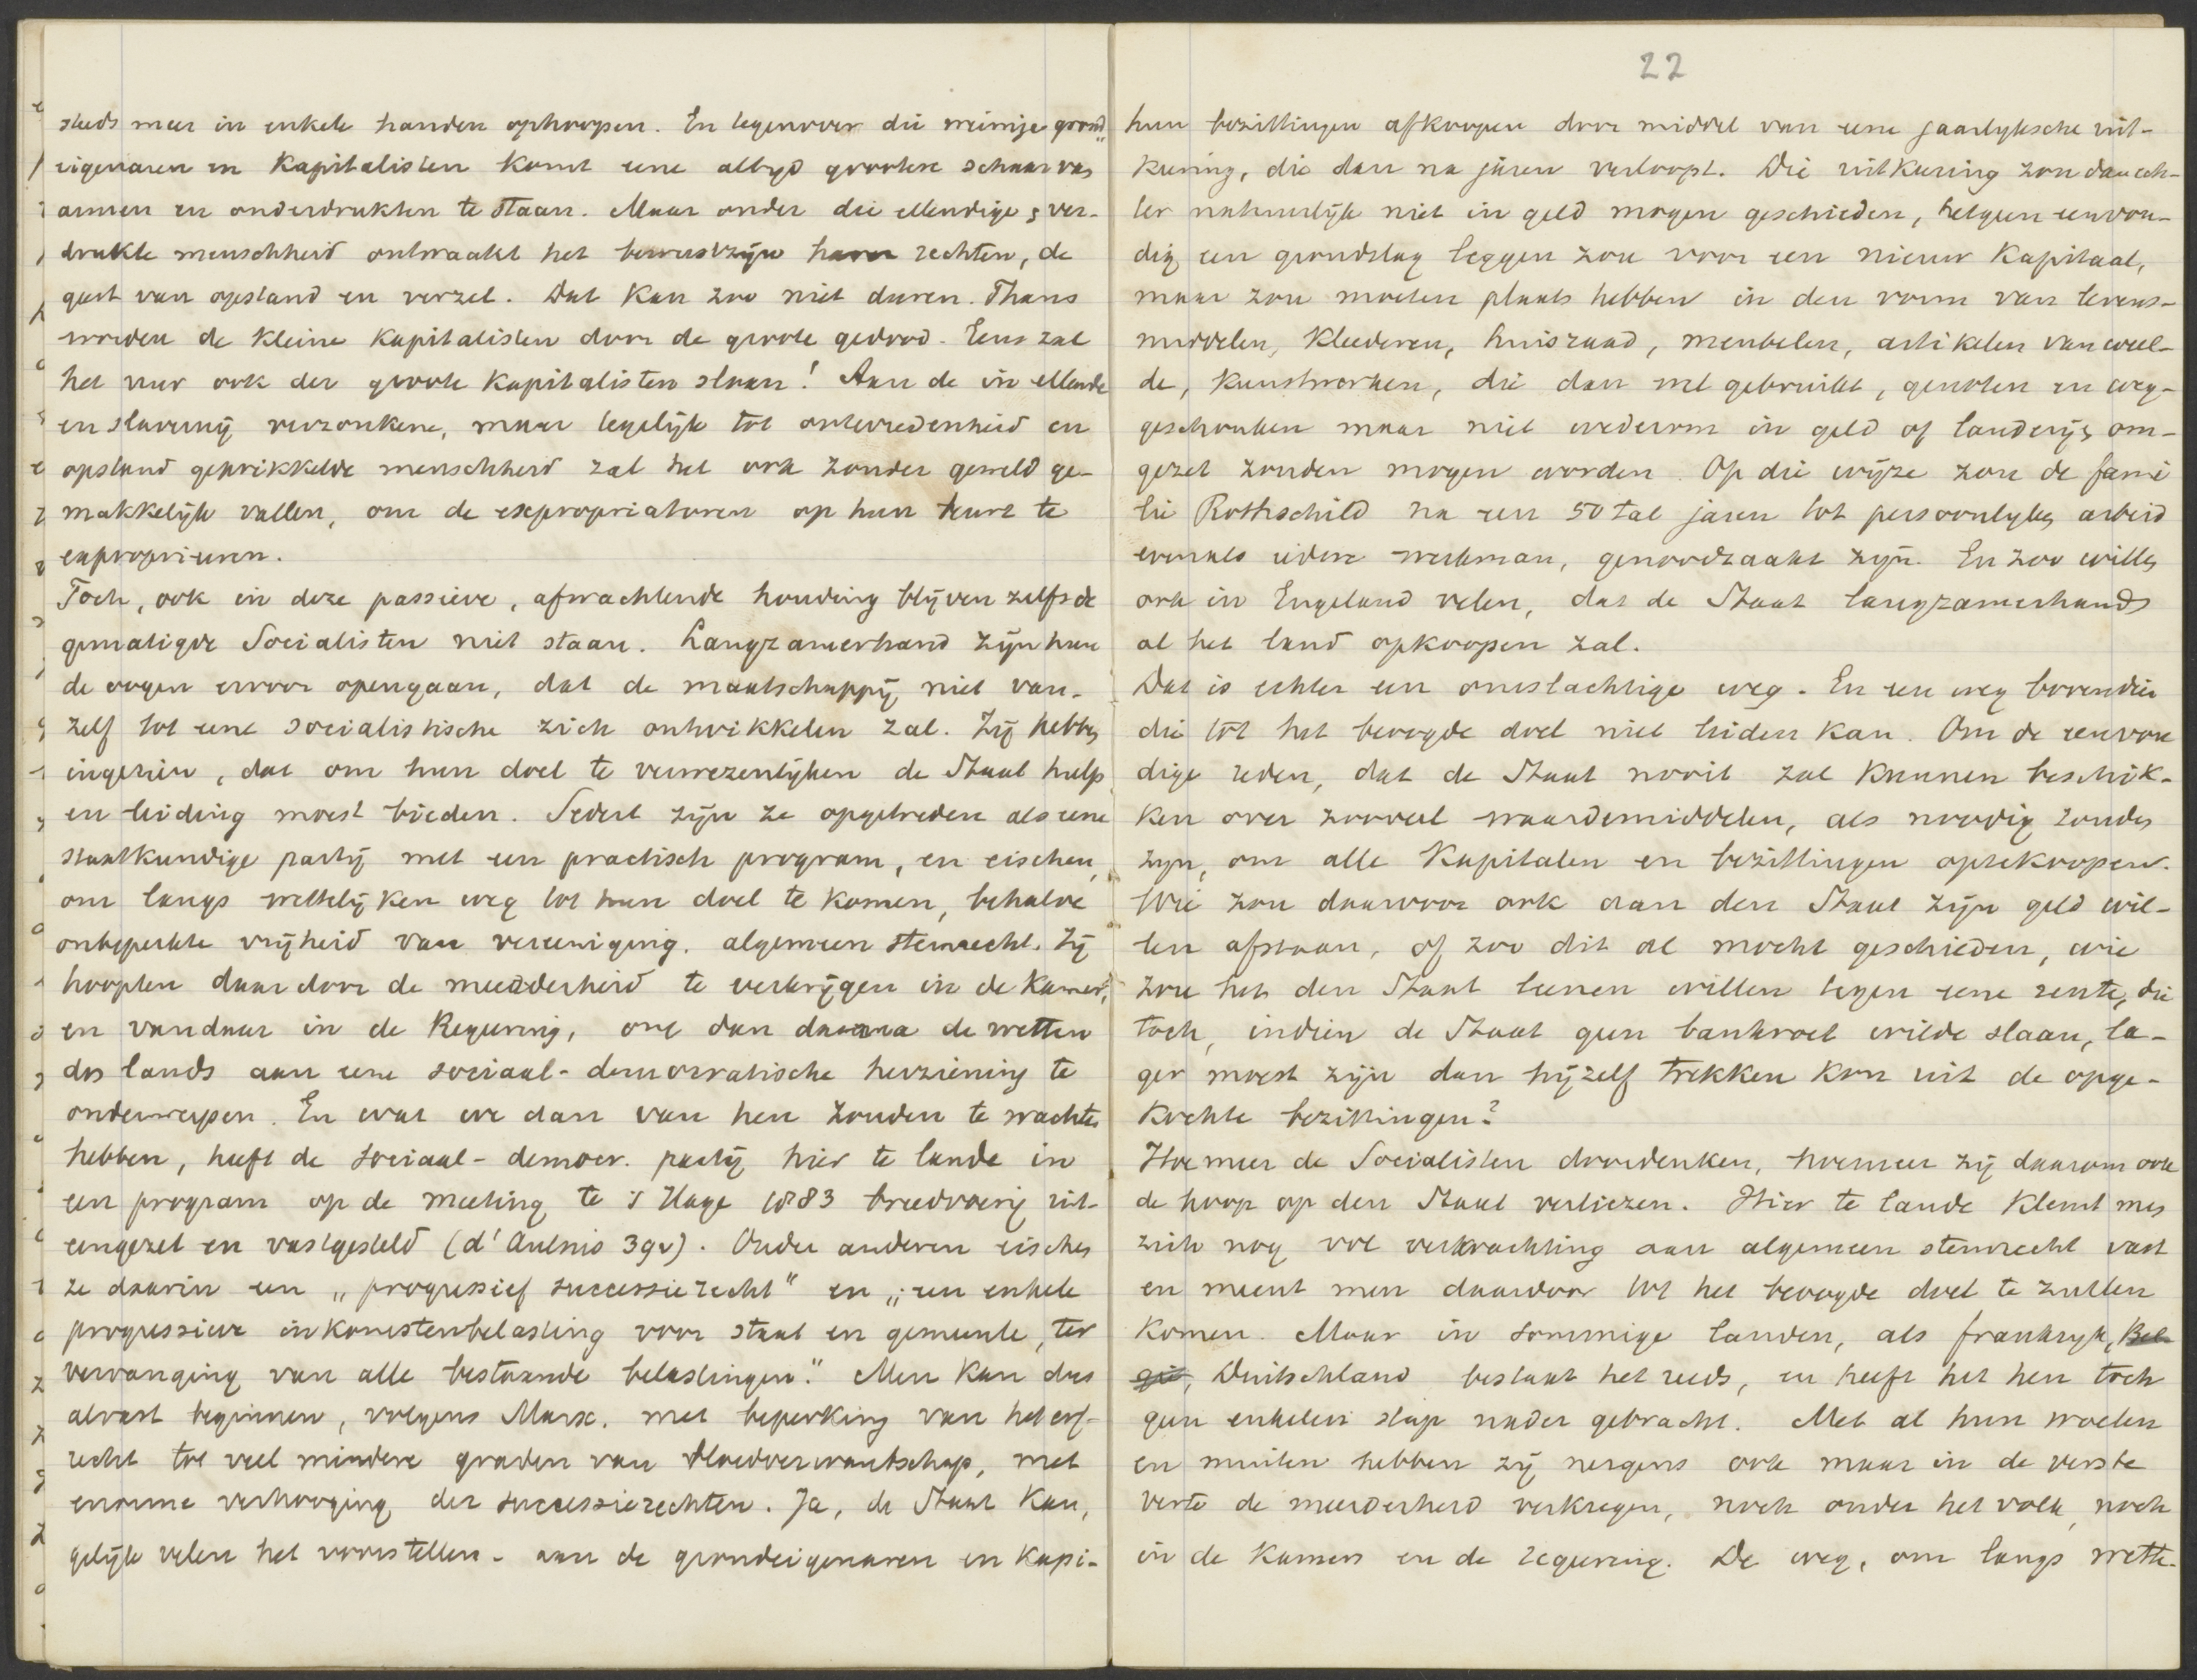 steeds meer in enkele handen ophoopen. En tegenover die weinige grond„
eigenaren en Kapitalisten komt eene altyd grootere schaar van
armen en onderdrukten te staan. Maar onder die ellendige, ver-
drukte menschheid ontwaakt het bewustzijn harer rechten, de
geest van opstand en verzet. Dat kan zoo niet duren. Thans
worden de Kleine Kapitalisten door de groote gedood. Eens zal
het uur ook der groote Kapitalisten slaan! Aan de in ellende
en slavernij verzonkene, maar tegelijk tot ontevredenheid en
opstand geprikkelde menschheid zal het ook zonder geweld ge-
makkelijk vallen, om de expropriatoren op hun beurt te
exproprieeren.
Toch, ook in deze passieve, afwachtende houding blijven zelfs de
gematigde Socialisten niet staan. Langzamerhand zijn hun
de oogen ervoor opengaan, dat de maatschappij niet van-
zelf tot eene socialistische zich ontwikkelen zal. Zij hebben
ingezien, dat om hun doel te verwezenlijken de Staat hulp
en leiding moest bieden. Sedert zijn ze opgetreden als eene
staatkundige partij met een practisch program, en eischen,
om langs wettelijken weg tot hun doel te komen, behalve
onbeperkte vrijheid van vereeniging, algemeen stemrecht. Zij
hoopten daardoor de meerderheid te verkrijgen in de Kamers,
en vandaar in de Regeering, om dan daarna de wetten
des lands aan eene sociaal-democratische herziening te
onderwerpen. En wat we dan van hen zouden te wachten
hebben, heeft de sociaal-democr. partij hier te lande in
een program op de meeting te 's Hage 1883 breedvoerig uit-
eengezet en vastgesteld (d'Aulnis 39v). Onder anderen eischen
ze daarin een „progressief successierecht" en „een enkele
progressieve inkomstenbelasting voor staat en gemeente, ter
vervanging van alle bestaande belastingen." Men kan dus
alvast beginnen, volgens Marx, met beperking van het erf-
recht tot veel mindere graden van bloedverwantschap, met
enorme verhooging der successierechten. Ja, de Staat kan,
gelijk velen het voorstellen - aan de grondeigenaren en Kapi-
22
hun bezittingen afkoopen door middel van eene jaarlyksche uit-
keering, die dan na jaren verloopt. Die uitkeering zou dan ech-
ter natuurlijk niet in geld mogen geschieden, hetgeen eenvou-
dig een grondslag leggen zou voor een nieuw Kapitaal,
maar zou moeten plaats hebben in den vorm van levens-
middelen, Kleederen, huisraad, meubelen, artikelen van weel-
de, Kunstwerken, die dan wel gebruikt, genoten en weg-
geschonken maar niet wederom in geld of landerijen om-
gezet zouden mogen worden. Op die wijze zou de fami
lie Rothschild na een 50 tal jaren tot persoonlyken arbeid
evenals iedere werkman, genoodzaakt zijn. En zoo willen
ook in Engeland velen, dat de Staat langzamerhand
al het land opkoopen zal.
Dat is echter een omslachtige weg. En een weg bovendien
die tot het beoogde doel niet leiden kan. Om de eenvou
dige reden, dat de Staat nooit zal Kunnen beschik-
ken over zooveel waardemiddelen, als noodig zouden
zyn, om alle Kapitalen en bezittingen optekoopen.
Wie zou daarvoor ook aan den Staat zijn geld wil-
len afstaan, of zoo dit al mocht geschieden, wie
zou het den Staat leenen willen tegen eene rente, die
toch, indien de Staat geen bankroet wilde slaan, la-
ger moest zijn dan hijzelf trekken kon uit de opge-
kochte bezittingen?
Hoe meer de Socialisten doordenken, hoemeer zij daarom ook
de hoop op den Staat verliezen. Hier te lande klemt men
zich nog vol verwachting aan algemeen stemrecht vast
en meent men daardoor tot het beoogde doel te zullen
komen. Maar in sommige landen, als frankryk, Bel
gië, Duitschland bestaat het reeds, en heeft het hen toch
geen enkelen stap nader gebracht. Met al hun woelen
en muiten hebben zij nergens ook maar in de verste
verte de meerderheid verkregen, noch onder het volk, noch
in de Kamers en de regeering. De weg, om langs wette-